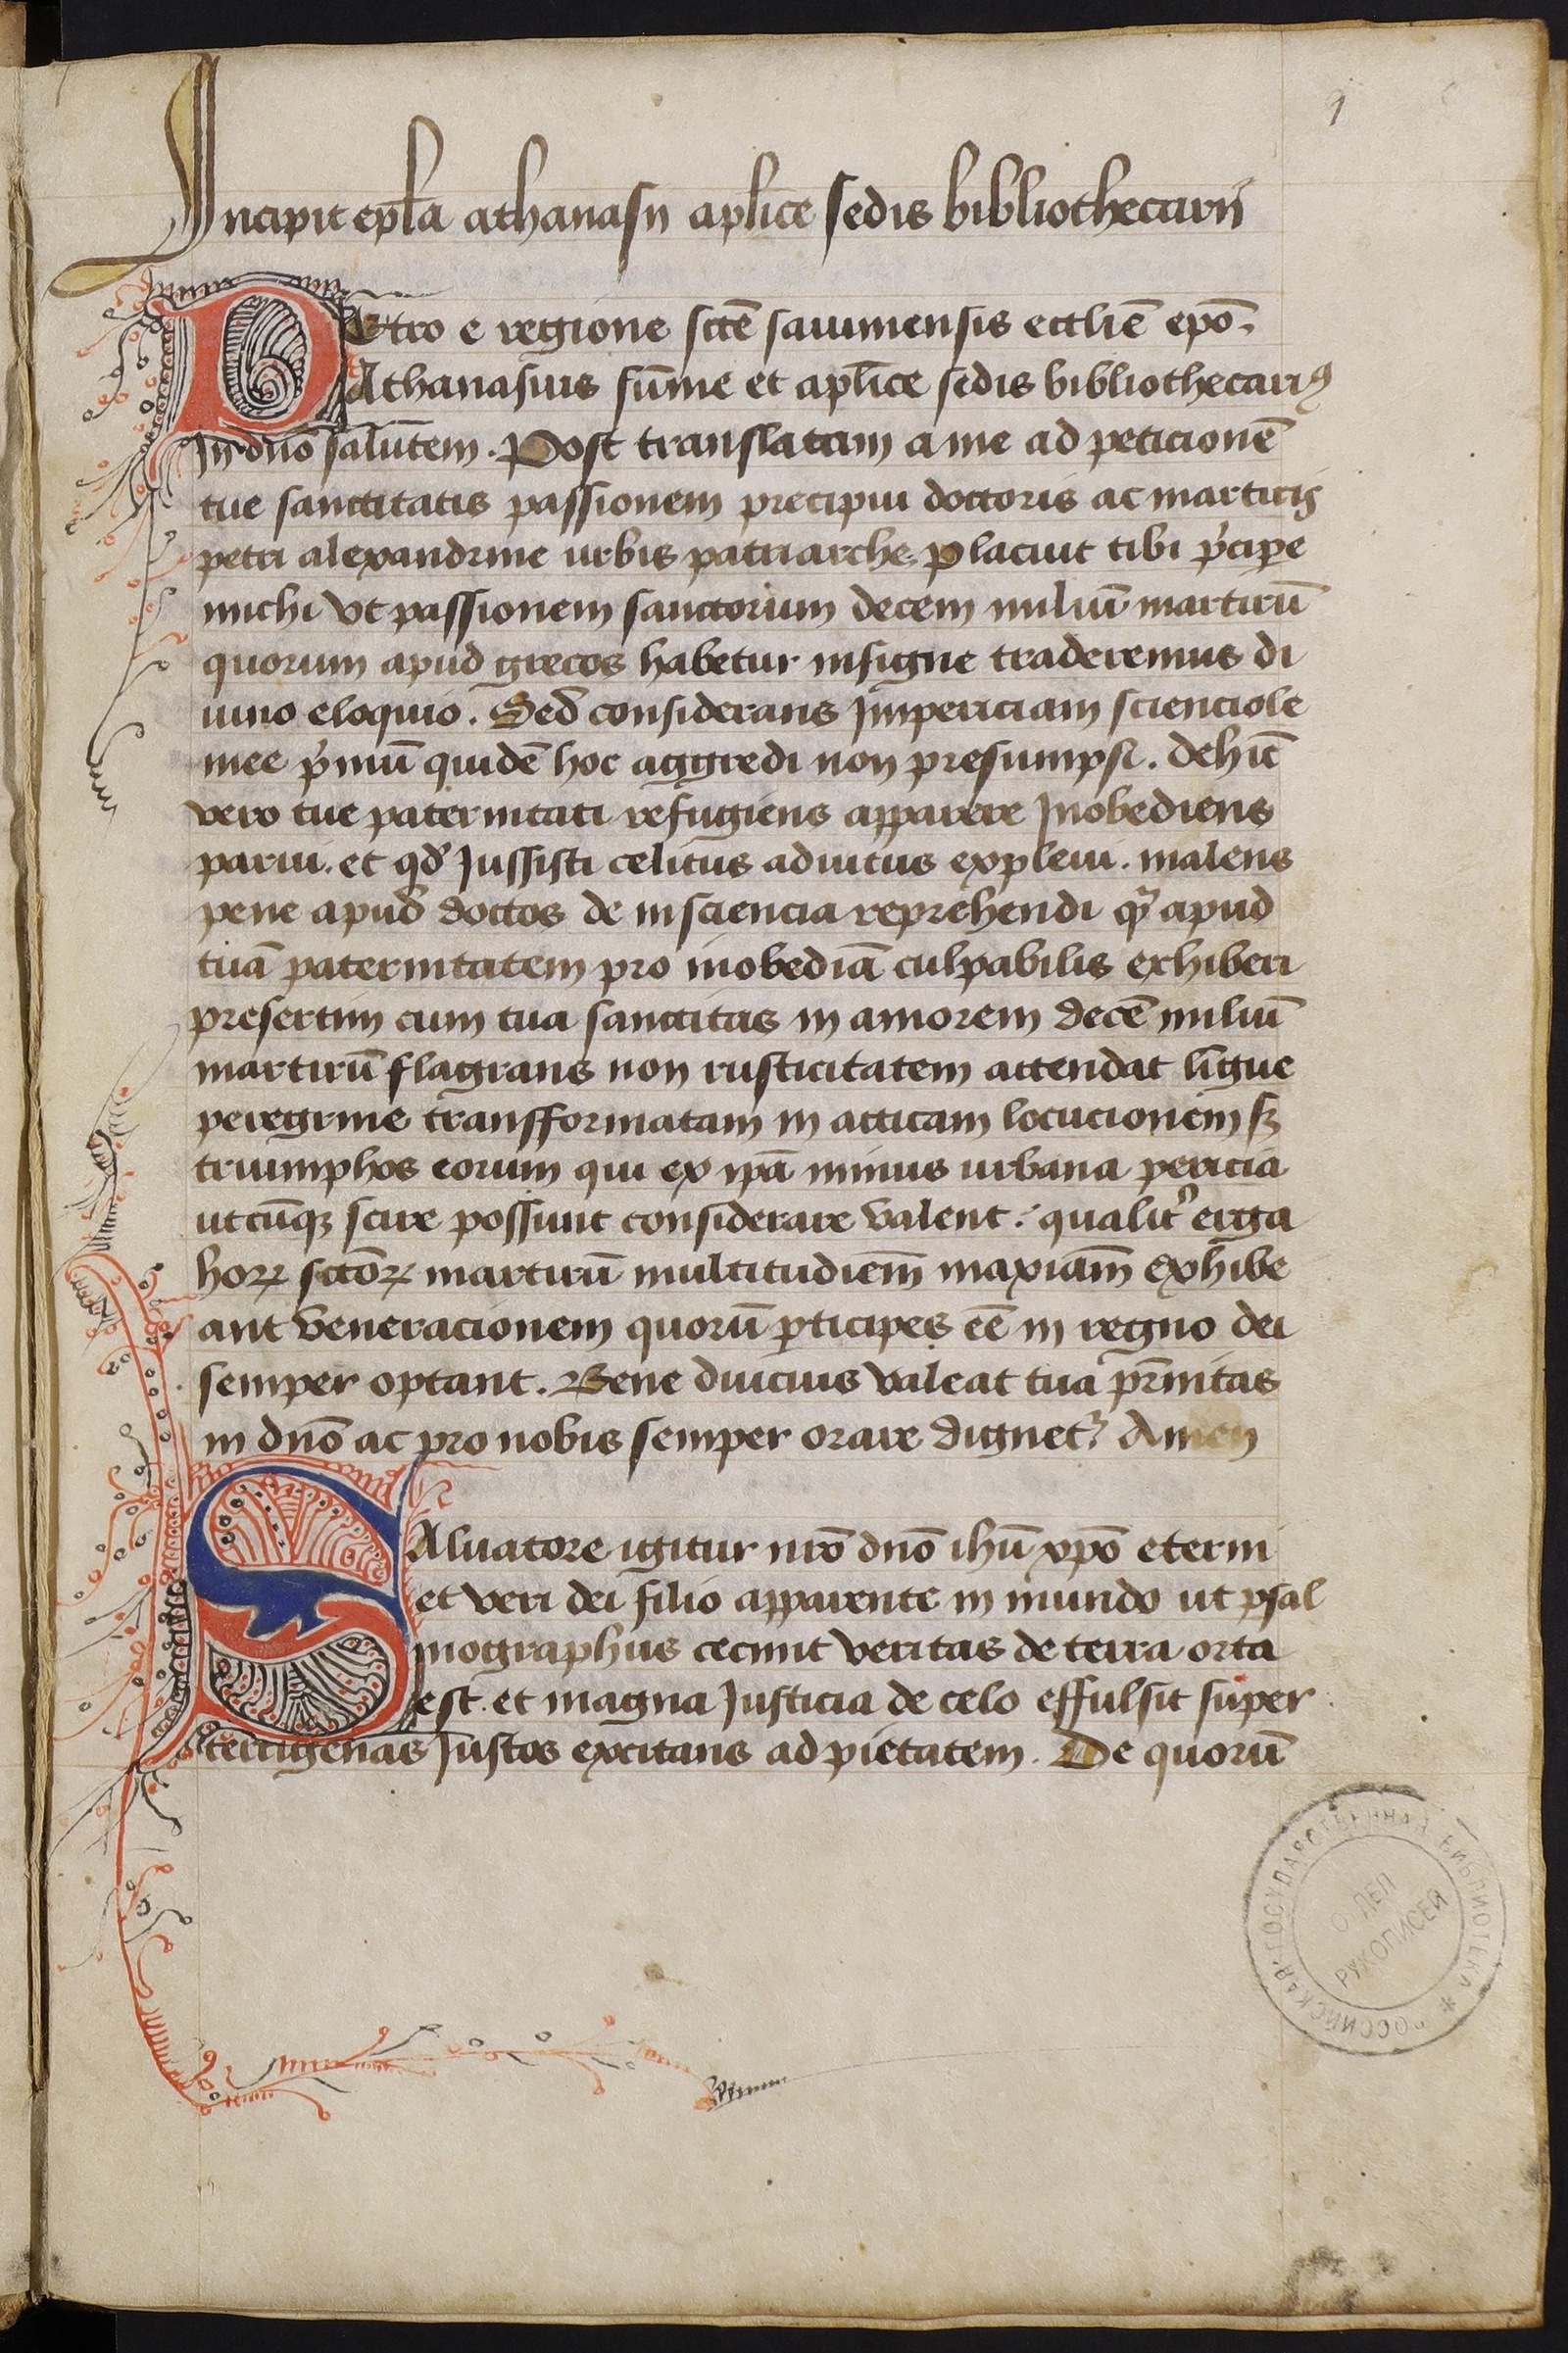 1
Incipit epl̄a athanasii aplīce sedis bibliothecarii
PEtro e regione sct̄e sauinensis eccliē epō.
Athanasius sūme et aplīce sedis bibliothecariꝰ
In dn̄o salutem. Post translatam a me ad peticionē
tue sanctitatis passionem precipui doctoris ac martiris
petri alexandrine urbis patriarche. placuit tibi p̄cipe
michi vt passionem sanctorum decem miliū martirū
quorum apud grecos habetur insigne traderemus di
uino eloquio. Sed considerans Impericiam scienciole
mee p̄mū quidē hoc aggredi non presumpsi. dehīc
vero tue paternitati refugiens apparere Inobediens
parui. et qd̛ Iussisti celitus adiutus expleui. malens
pene apud doctos de insciencia reprehendi qͣ̄ apud
tuā paternitatem pro inobediā culpabilis exhiberi
presertim cum tua sanctitas in amorem decē miliū
martirū flagrans non rusticitatem attendat līgue
peregrine transformatam in atticam locucionem sꝫ
triumphos eorum qui ex ip̄a minus urbana pericia
utcūqꝫ scire possunt considerare valent. qualit᷑ erga
hoꝝ sctōꝝ martirū multitudiem̄ maxiam̄ exhibe
ant veneracionem quorū ꝑticipes eē in regno dei
semper optant. Bene diucius valeat tua pr̄nitas
in dn̄o ac pro nobis semper orare dignet᷑ Amen
SAluatore igitur nr̄o dn̄o ihū xp̄o eterni
et veri dei filio apparente in mundo ut psal
mographus cecinit veritas de terra orta
est. et magna Iusticia de celo effulsit super
terrigenas Iustos excitans ad pietatem. De quorū
РОССИЙСКАЯ ГОСУДАРСТВЕННАЯ БИБЛИОТЕКА *
ОТДЕЛ
РУКОПИСЕЙ